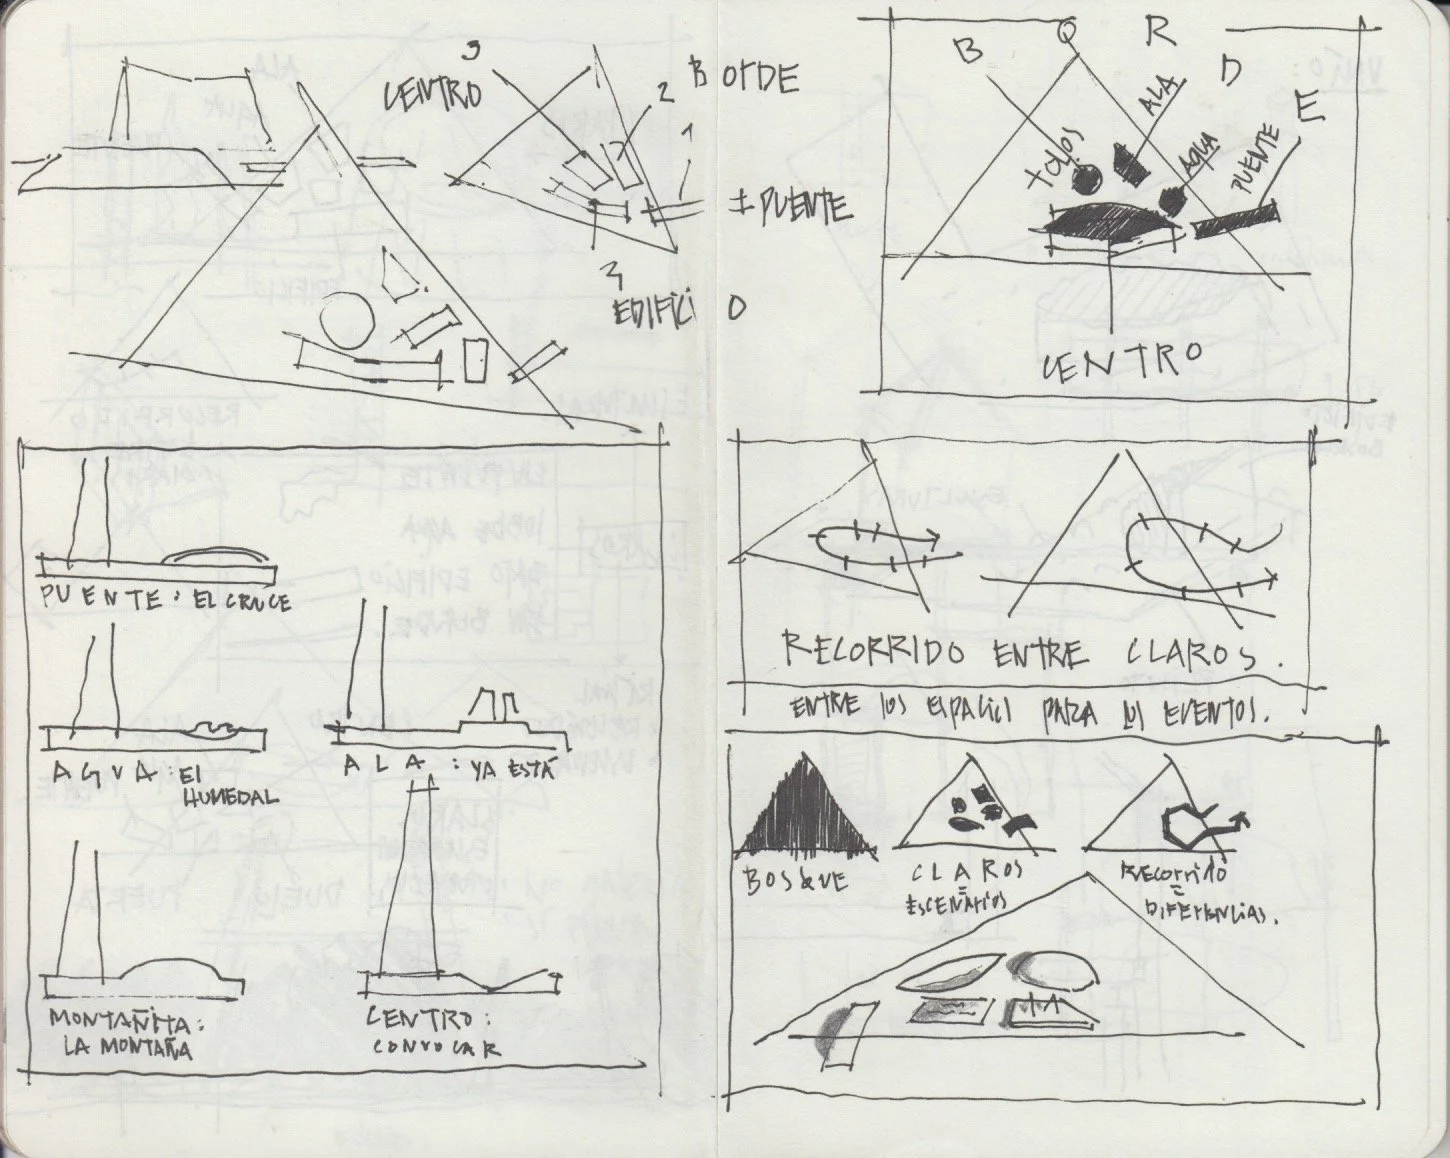 3
CENTRO
2
1
BORDE
± PUENTE
3
EDIFICIO
PUENTE: EL CRUCE
AGUA: EL
HUMEDAL
ALA: YA ESTÁ
MONTAÑITA:
LA MONTAÑA
CENTRO:
CONVOCAR
B O R D E
ALA
AGUA
PUENTE
CENTRO
RECORRIDO ENTRE CLAROS.
ENTRE LOS ESPACIOS PARA LOS EVENTOS.
BOSQUE
CLAROS
=
ESCENARIOS
RECORRIDO
=
DIFERENCIAS.